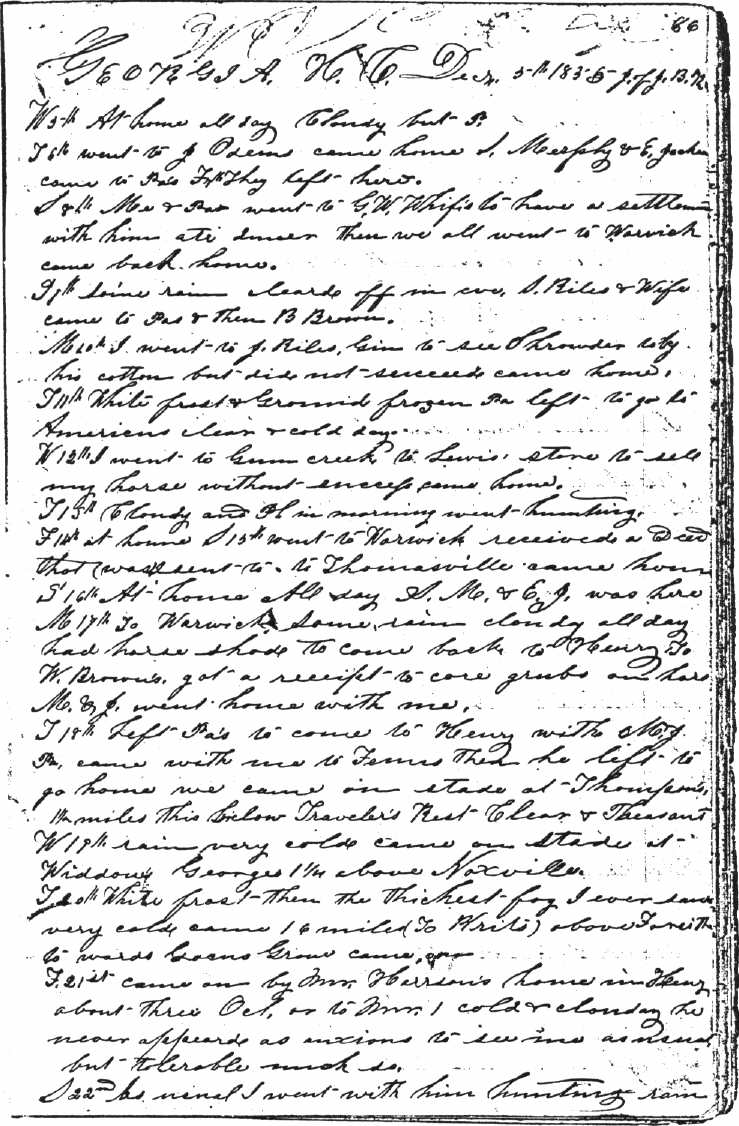 66
GEORGIA. H. C. Decr. 5th 1835 J. of J. B. N.
W 5th At home all day Cloudy but P.
T 6th went to J Odems came home S. Merphy & E. Jacken
came to Pas F 7th They left here.
S 8th Me & Pa went to G. W. Whifis to have a settlem
with him ate dinner then we all went to Warwick
came back home.
S 9th Some rain cleard off in eve, S. Riles & Wife
came to Pas & then B Brown.
M 10th I went to J. Riles, Gin to see Shrowder to by
his cotton but did not succeed came home,
T 11th White frost & Ground frozen Pa left to go to
Americus clear & cold day.
W 12th I went to Gum creek to Lewis' store to sell
my horse without success came home.
T 13th Cloudy and Pl in morning went hunting.
F 14th at home S 15th went to Warwick received a Deed
that (was) sent to to Thomasville came hom
S 16th At home All day S. M. & E. J. was here
M 17th To Warwick, Some rain cloudy all day
had horse shode to come back to Henry To
W. Browns, got a receipt to core grubs on hors
M. & J. went home with me,
T 18th Left Pa's to come to Henry with M. J.
Pa, came with me to Fenns then he left to
go home we came on stade at Thompson,
miles this below Traveler's Rest Clear & Pleasant
W 19th rain very cold came on stade at
Widdows Georges 1 1/4 above Noxville.
T 20th White frost then the thickest fog I ever saw
very cold came 16 miles (To Write) above Forsith
to wards Goens Grow came,
F. 21st came on by Mr. Herrson's home in Henry
about three Oct, or to Mr. 1 cold & clouday he
never appeard as anxious to see me as usual
but tolerable much so.
S 22nd As usual I went with him hunting rain